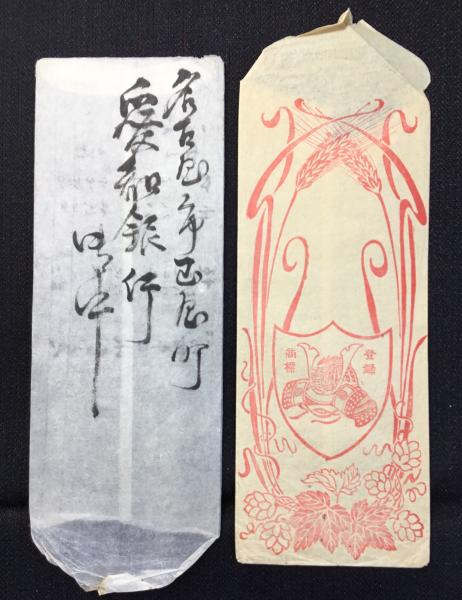 名古屋市玉屋町
愛知銀行
御中
登録
商標